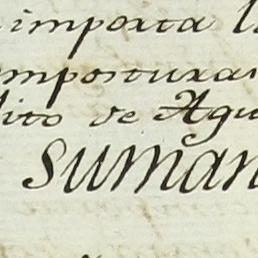 importa l
mposturas
dito de Agu
suman